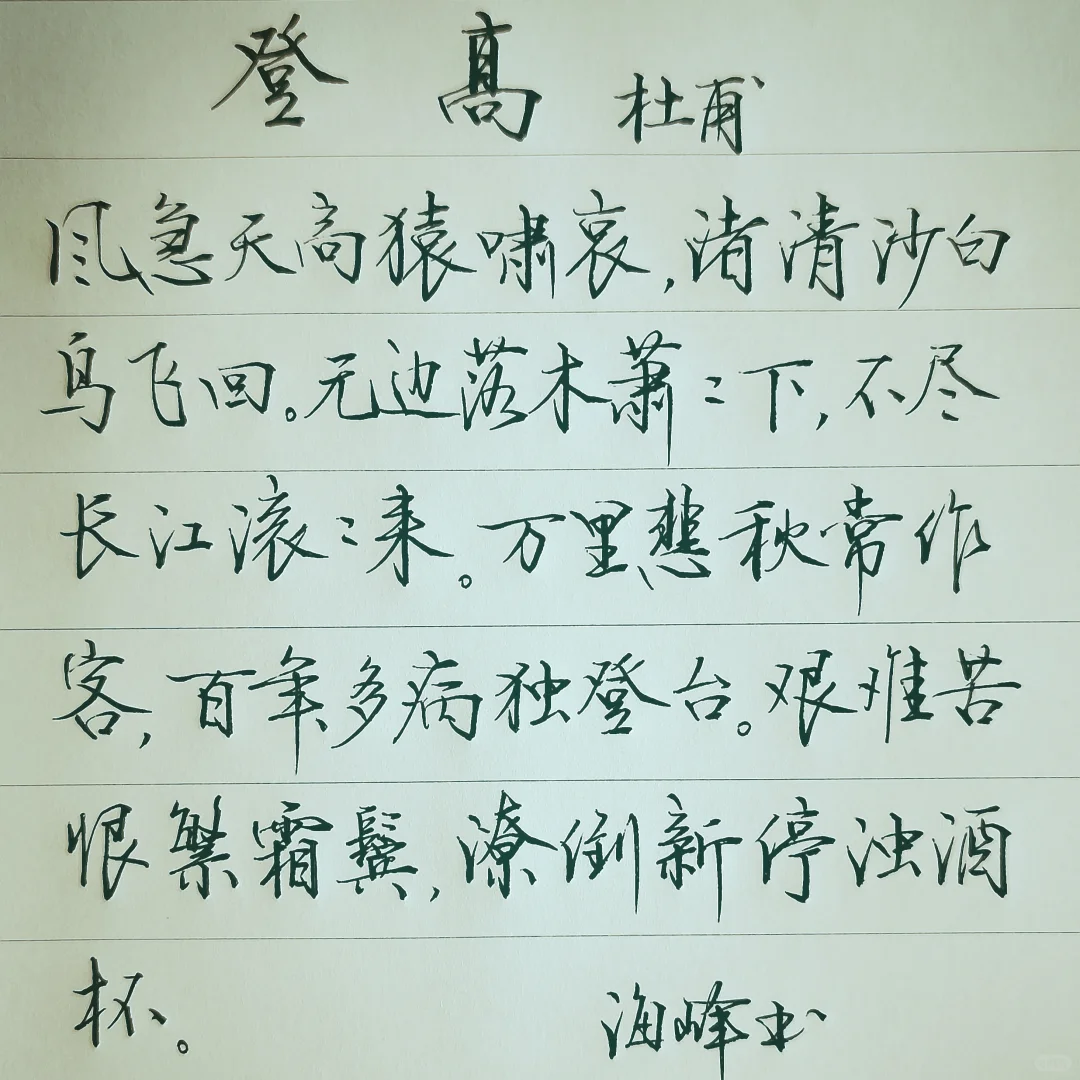 登高 杜甫
风急天高猿啸哀，渚清沙白
鸟飞回。无边落木萧〻下，不尽
长江滚〻来。万里悲秋常作
客，百年多病独登台。艰难苦
恨繁霜鬓，潦倒新停浊酒
杯。 海峰书